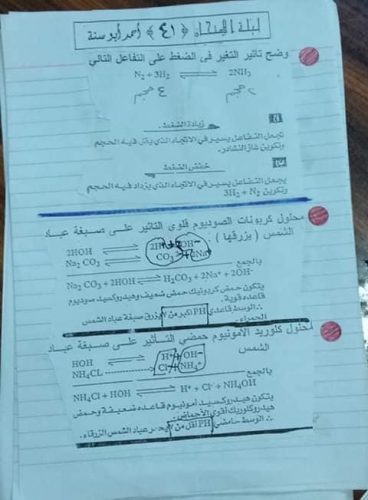 ليلة الامتحان ﴿ ٤١ ﴾ أحمد أبو سنة
وضح تأثير التغير فى الضغط على التفاعل التالي
N₂ + 3H₂ ⇌ 2NH₃
٤ حجم ٢ حجم
زيادة الضغط
تجعل التفاعل يسير فى الاتجاه الذى يقل فيه الحجم
وتكوين غاز النشادر.
خفض الضغط
يجعل التفاعل يسير فى الاتجاه الذى يزداد فيه الحجم
وتكوين 3H₂ + N₂
محلول كربونات الصوديوم قلوى التأثير على صبغة عباد
الشمس ( يزرقها ) :
2HOH ⇌ 2H⁺ + 2OH⁻
Na₂CO₃ ⇌ CO₃ + 2Na⁺
بالجمع
Na₂CO₃ + 2HOH ⇌ H₂CO₃ + 2Na⁺ + 2OH⁻
يتكون حمض كربونيك حمض ضعيف وهيدروكسيد صوديوم
قاعدة قوية.
∴ الوسط قاعدى PH اكبر من ٧ يزرق صبغة عباد الشمس
الحمراء.
محلول كلوريد الأمونيوم حمضي التأثير على صبغة عباد
الشمس
HOH ⇌ H⁺ + OH⁻
NH₄CL → Cl⁻ + NH₄⁺
بالجمع
NH₄Cl + HOH ⇌ H⁺ + Cl⁻ + NH₄OH
يتكون هيدروكسيد أمونيوم قاعدة ضعيفة وحمض
هيدروكلوريك أقوى الأحماض.
∴ الوسط حامضى PH أقل من ٧ يحمر عباد الشمس الزرقاء.